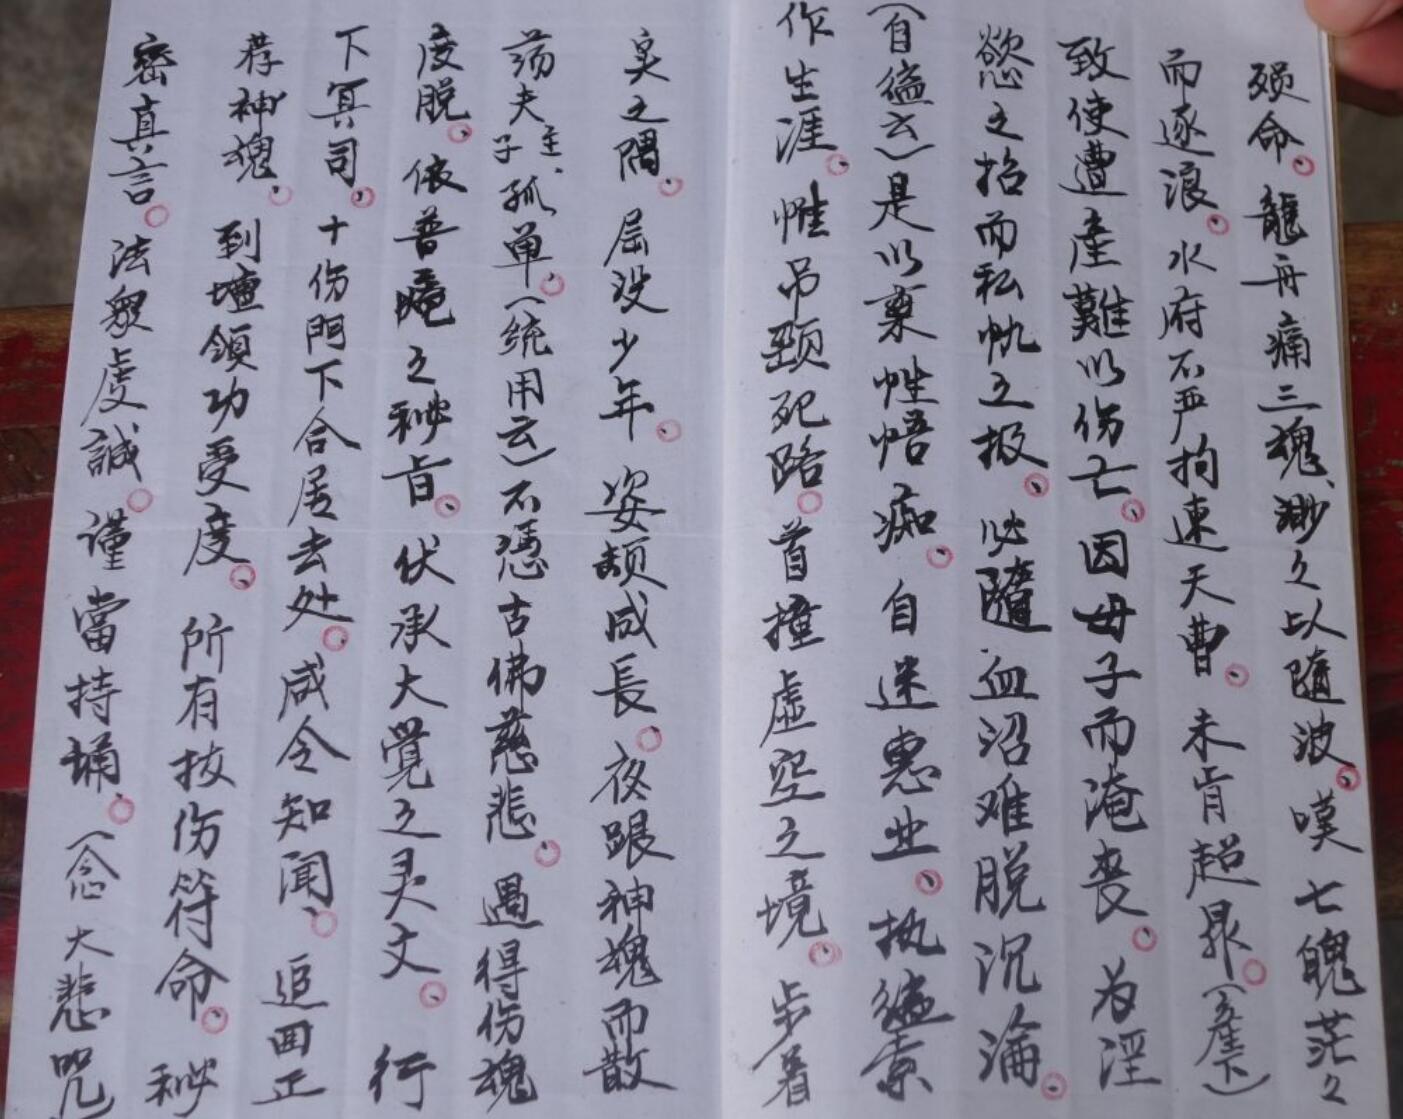 殒命。龍舟痛三魂渺々以随波。嘆七魄茫々
而逐浪。水府不严拘速天曹。未肯超昇。(产下)
致使遭產難以伤亡。因母子而淹丧。为淫
慾之招而私忱之报。必隨血沼难脱沉淪。
(自縊云)是以稟性悟痴。自迷惠业。执縊索
作生涯。惟吊頸死路。首撞虛空之境。步着
臭之隅。屈没少年。姿颜咸長。夜跟神魂而散
荡夫主子孤单。(统用云)不憑古佛慈悲。遇得伤魂
度脱。依普唵之秘旨。伏承大覺之灵文。行
下冥司。十伤門下合居去处。咸令知闻。追回正
荐神魂。到壇領功受度。所有拔伤符命。秘
密真言。法眾虔誠。謹當持誦。(念大悲咒